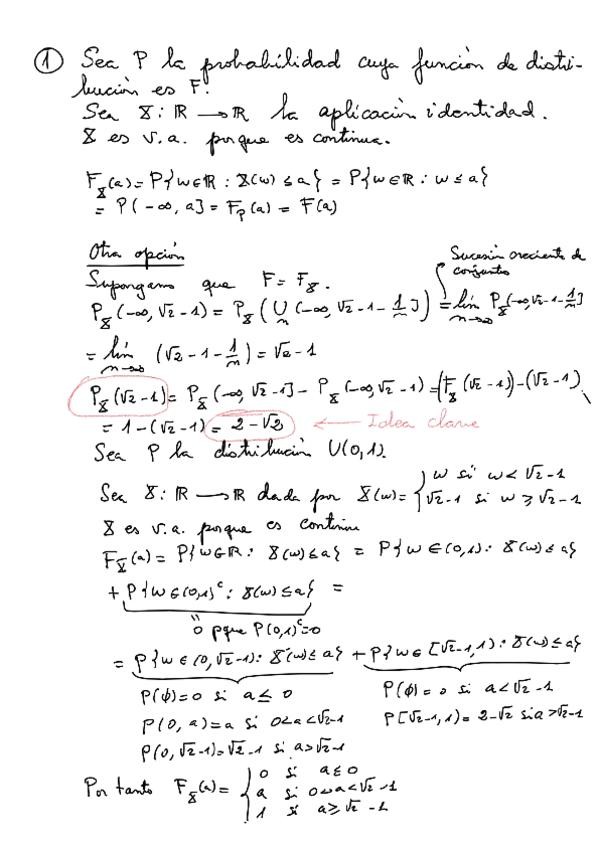 ① Sea P la probabilidad cuya función de distri-
bución es F.
Sea X: ℝ → ℝ la aplicación identidad.
X es v.a. porque es continua.
F_X(a) = P{w∈ℝ : X(w) ≤ a} = P{w∈ℝ : w ≤ a}
= P(-∞, a] = F_P(a) = F(a)
Otra opción
Supongamos que F = F_X.
Sucesión creciente de
conjuntos
P_X(-∞, √2-1) = P_X(∪_n (-∞, √2-1-1/n]) = lím_{n→∞} P_X(-∞, √2-1-1/n]
= lím_{n→∞} (√2-1-1/n) = √2-1
P_X(√2-1) = P_X(-∞, √2-1] - P_X(-∞, √2-1) = (F_X(√2-1)) - (√2-1)
= 1-(√2-1) = 2-√2 ← Idea clave
Sea P la distribución U(0,1).
Sea X: ℝ → ℝ dada por X(w) = { w si w < √2-1
√2-1 si w ≥ √2-1
X es v.a. porque es continua
F_X(a) = P{w∈ℝ : X(w) ≤ a} = P{w∈(0,1) : X(w) ≤ a}
+ P{w∈(0,1)ᶜ : X(w) ≤ a} =
0 pque P(0,1)ᶜ=0
= P{w∈(0,√2-1) : X(w) ≤ a} + P{w∈[√2-1,1) : X(w) ≤ a}
P(∅)=0 si a ≤ 0 P(∅)=0 si a < √2-1
P(0,a)=a si 0<a<√2-1 P[√2-1,1)=2-√2 si a>√2-1
P(0,√2-1)=√2-1 si a>√2-1
Por tanto F_X(a) = { 0 si a ≤ 0
a si 0<a<√2-1
1 si a ≥ √2-1